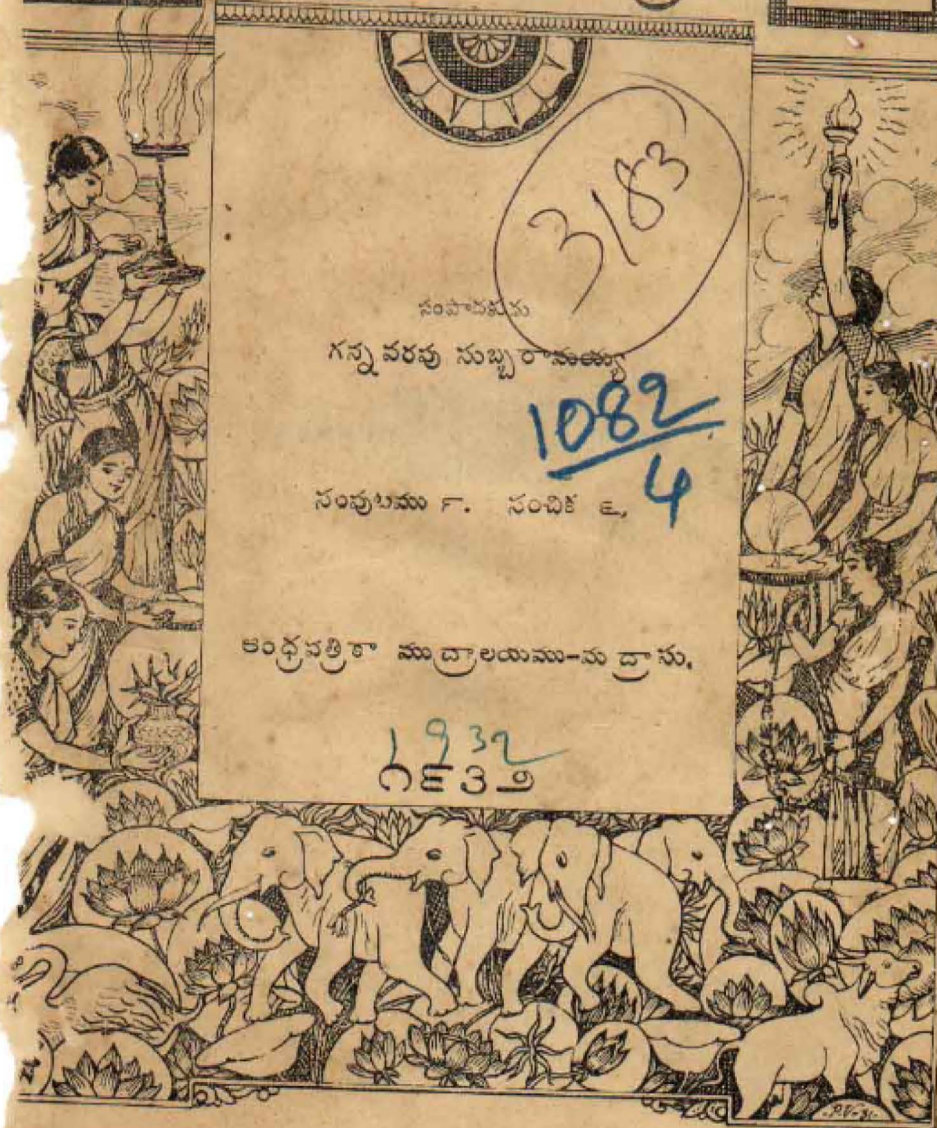 3183
సంపాదకుడు
గన్నవరపు సుబ్బరామయ్య
1082
4
సంపుటము ౯. సంచిక ౬,
ఆంధ్రపత్రికా ముద్రాలయము-మద్రాసు.
1932
౧౯౩౨